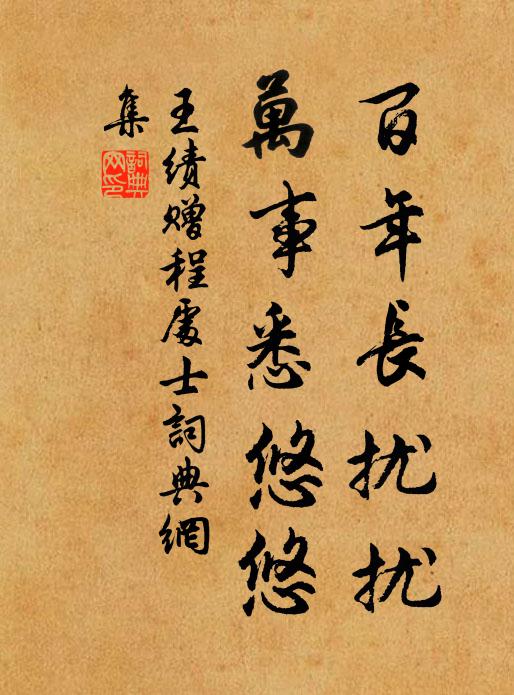 百年长扰扰
萬事悉悠悠
王绩赠程處士詞典網
集
詞典網印